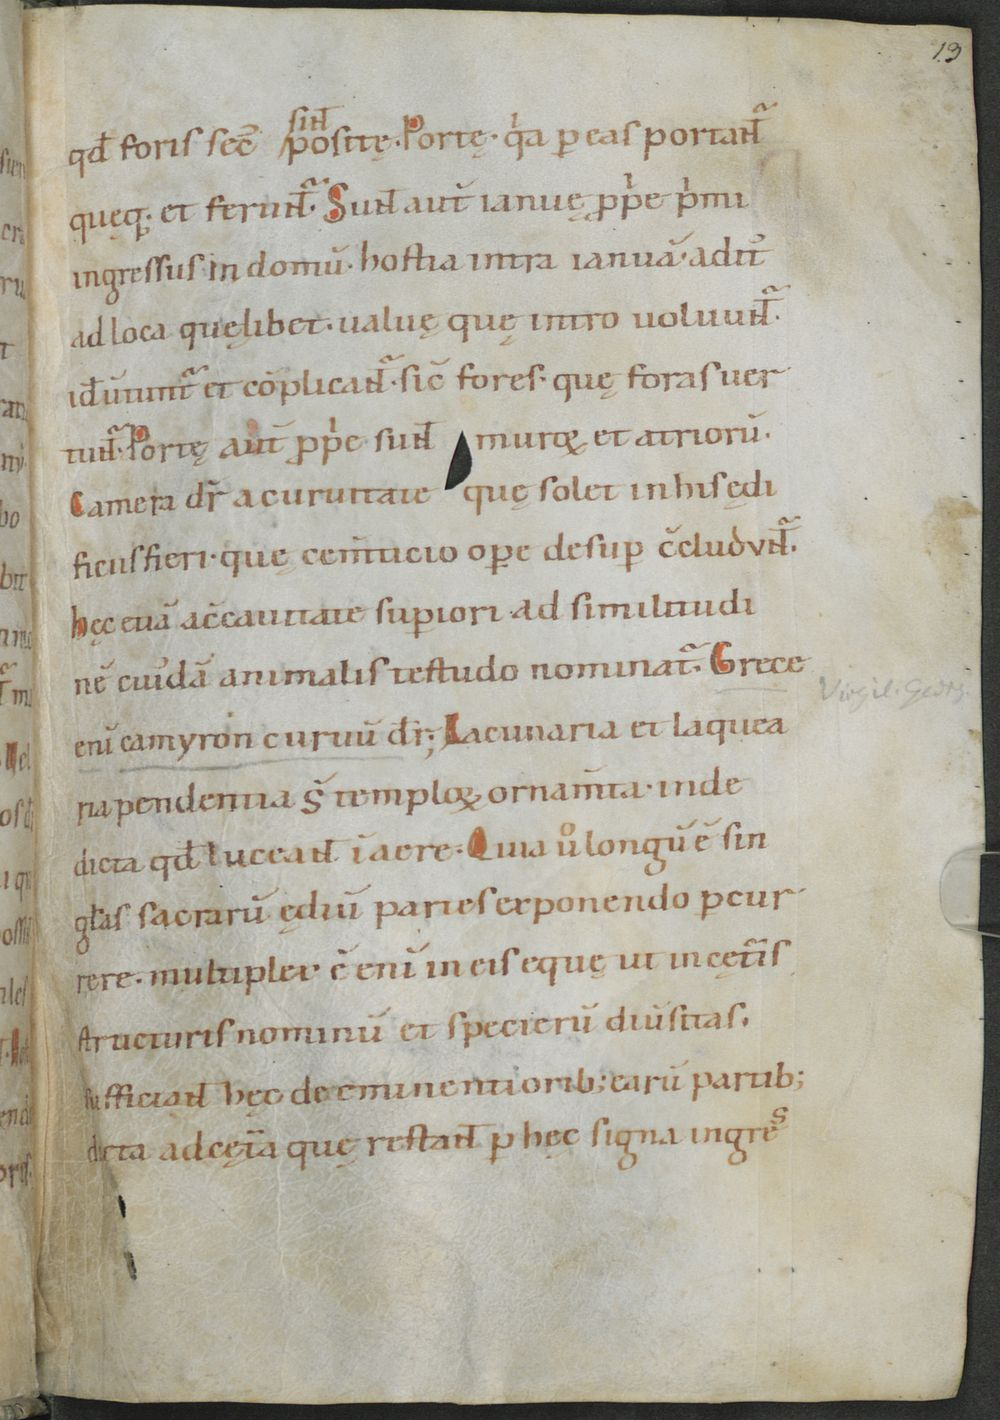 13
sint
qđ foris sec̄ positę. Portę. qͥa ꝑ eas portant᷑
quęq;. et feruint᷑. Sunt aut̄ ianuę ꝓpͥe pͥmi
ingressus in domū. hostia intra ianuā. adit᷒
ad loca quęlibet. ualuę quę intro uoluunt᷑.
id÷ ūtunt᷑ et cōplicant᷑. sic̄ fores. quę foras uer
tunt᷑. Portę aut̄ ꝓpͥe sunt muroꝝ et atriorū.
Camera dr̄ a curuitate quę solet in his ędi
ficiis fieri. quę cem̄ticio oꝑe desuꝑ c̄cluduntᷓ.
hęc etiā ac̄cauitate suꝑiori ad similitudi
nē cuiᷤdā animalis testudo nominat᷑. Grece
enī camyron curuū dr̄; Lacunaria et laquea
Virgil. Georg.
ria pendentia s̄ temploꝝ ornam̄ta. inde
dicta qđ luceant ī aere. Quia uͦ longū ē sin
gl̄as sacrarū ędiū partes exponendo ꝑcur
rere. multiplex ē enī in eis equę ut in cęt̄is
structuris nominū et specierū diūsitas.
sufficiant hęc de eminentiorib; earū partib;
dicta ad cęt̄a quę restant ꝑ hęc signa ingreˢ